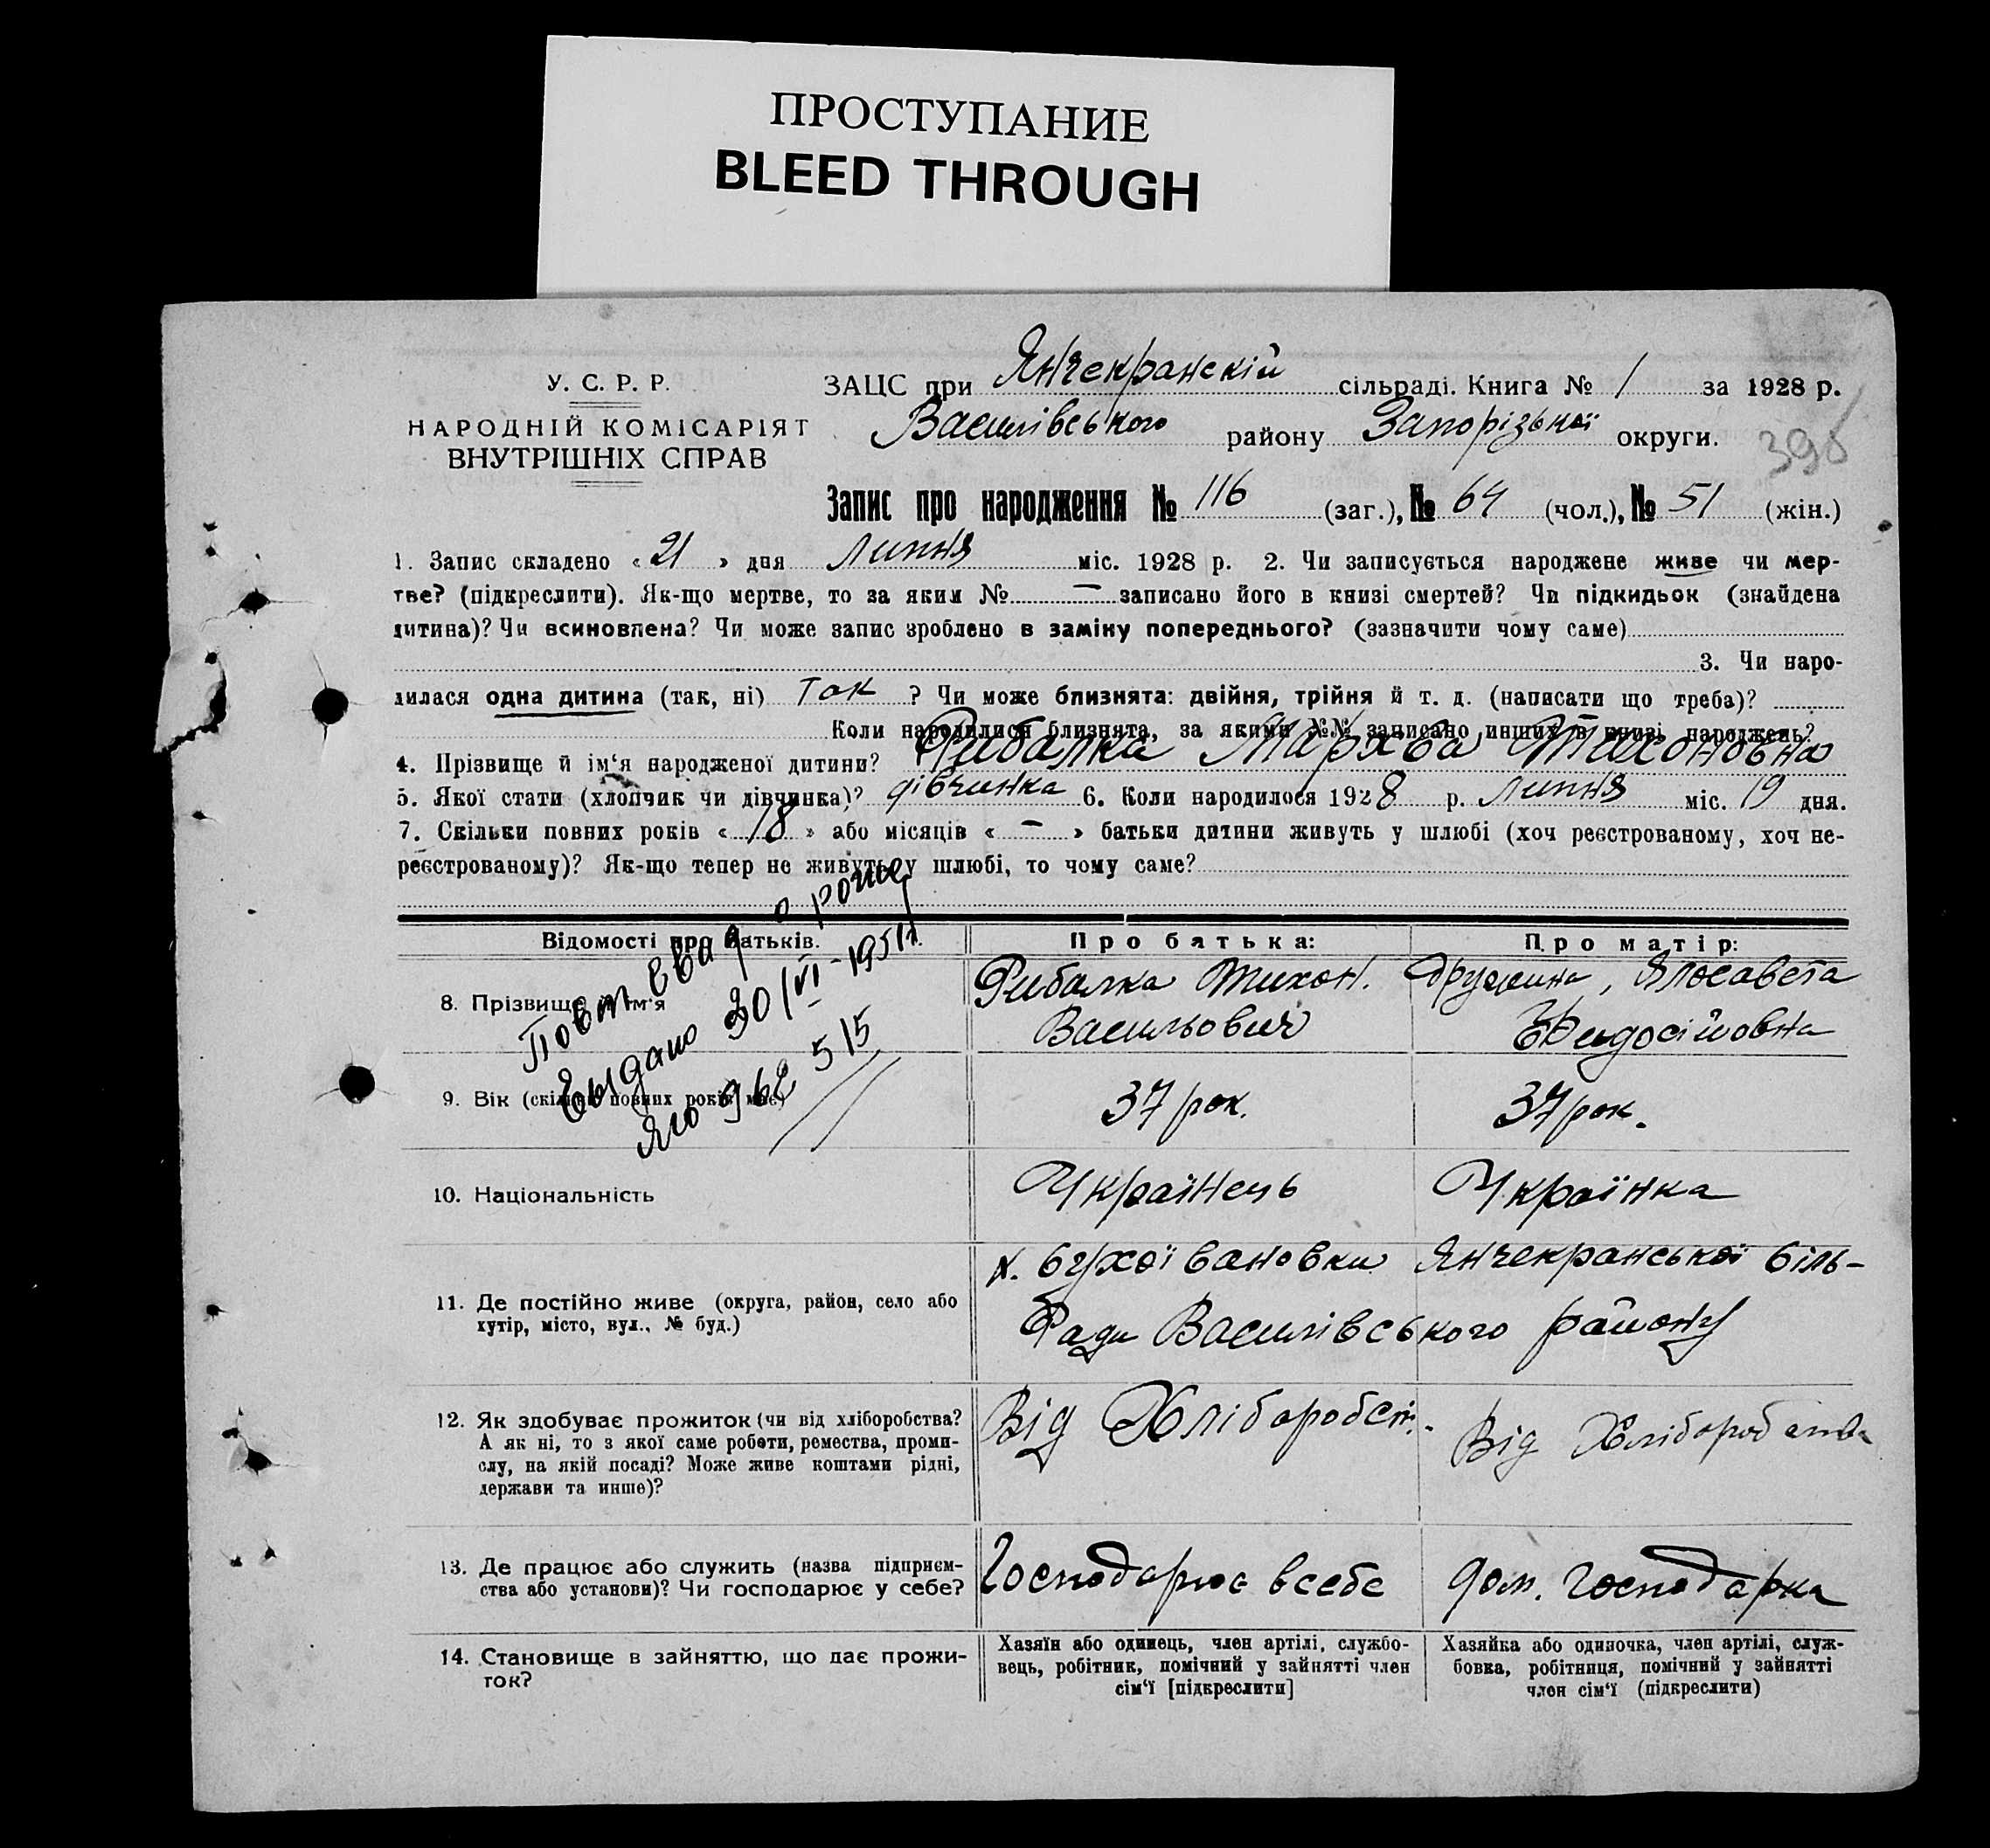 ПРОСТУПАНИЕ
BLEED THROUGH
У. С. Р. Р.
НАРОДНІЙ КОМІСАРІЯТ
ВНУТРІШНІХ СПРАВ
ЗАЦС при Янчекранскій сільраді. Книга № 1 за 1928 р.
Василівського району Запорізької округи.
398
Запис про народження № 116 (заг.), № 64 (чол.), № 51 (жін.)
1. Запис складено « 21 » дня липня міс. 1928 р. 2. Чи записується народжене живе чи мер-
тве? (підкреслити). Як-що мертве, то за яким № — записано його в книзі смертей? Чи підкидьок (знайдена
дитина)? Чи всиновлена? Чи може запис зроблено в заміну попереднього? (зазначити чому саме)
3. Чи наро-
дилася одна дитина (так, ні) Так ? Чи може близнята: двійня, трійня й т. д. (написати що треба)?
Коли народилися близнята, за якими №№ записано инших в книзі народжень?
4. Прізвище й ім‘я народженої дитини? Рибалка Мархва Тихоновна
5. Якої стати (хлопчик чи дівчинка)? дівчинка 6. Коли народилося 1928 р. Липня міс. 19 дня.
7. Скільки повних років « 18 » або місяців « — » батьки дитини живуть у шлюбі (хоч реєстрованому, хоч не-
реєстрованому)? Як-що тепер не живуть у шлюбі, то чому саме?
Повт свид о рожд
Выдано 30/VI-1951 г.
ЯЮ 962515
Відомості про батьків.
Про батька:
Про матір:
8. Прізвище й ім‘я
Рибалка Тихон.
Васильович
Дружина, Єлосавета
9. Вік (скільки повних років має)
37 рок.
37 рок.
10. Національність
Українець
Українка
11. Де постійно живе (округа, район, село або
хутір, місто, вул., № буд.)
Янчекранської біль-
Ради Василівського району
12. Як здобуває прожиток (чи від хліборобства?
А як ні, то з якої саме роботи, ремества, проми-
слу, на якій посаді? Може живе коштами рідні,
держави та инше)?
Від Хліборобст.
Від Хліборобства
13. Де працює або служить (назва підприєм-
ства або установи)? Чи господарює у себе?
Господарює в себе
дом. господарка
14. Становище в зайняттю, що дає прожи-
ток?
Хазяїн або одинець, член артілі, службо-
вець, робітник, помічний у зайнятті член
сім‘ї [підкреслити]
Хазяйка або одиночка, член артілі, служ-
бовка, робітниця, помічний у зайнятті
член сім‘ї (підкреслити)